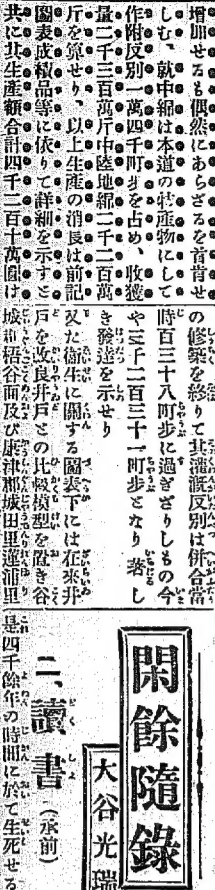 増加せるも偶然にあらざるを首肯せ
しむ、就中綿は本道の特産物にして
作附反別一萬四千町歩を占め、收獲
量二千三百萬斤中陸地綿二千二百萬
斤を算せり、以上生産の消長は前記
圖表成績品等に依りて詳細を示すと
共に其生産額合計四千二百十萬圓け
の修築を終りて其灌漑反別は併合當
時百三十八町歩に過ぎざりしもの今
や三千二百三十一町歩となり著し
き發達を示せり
又た衛生に關する圖表下には在來井
戸を改良井戸との比較模型を置き谷
城郡梧谷面及び康津郡城田里蓮浦里
閑餘隨錄
大谷光瑞
二、讀書（承前）
是四千餘年の時間に於て生死せる